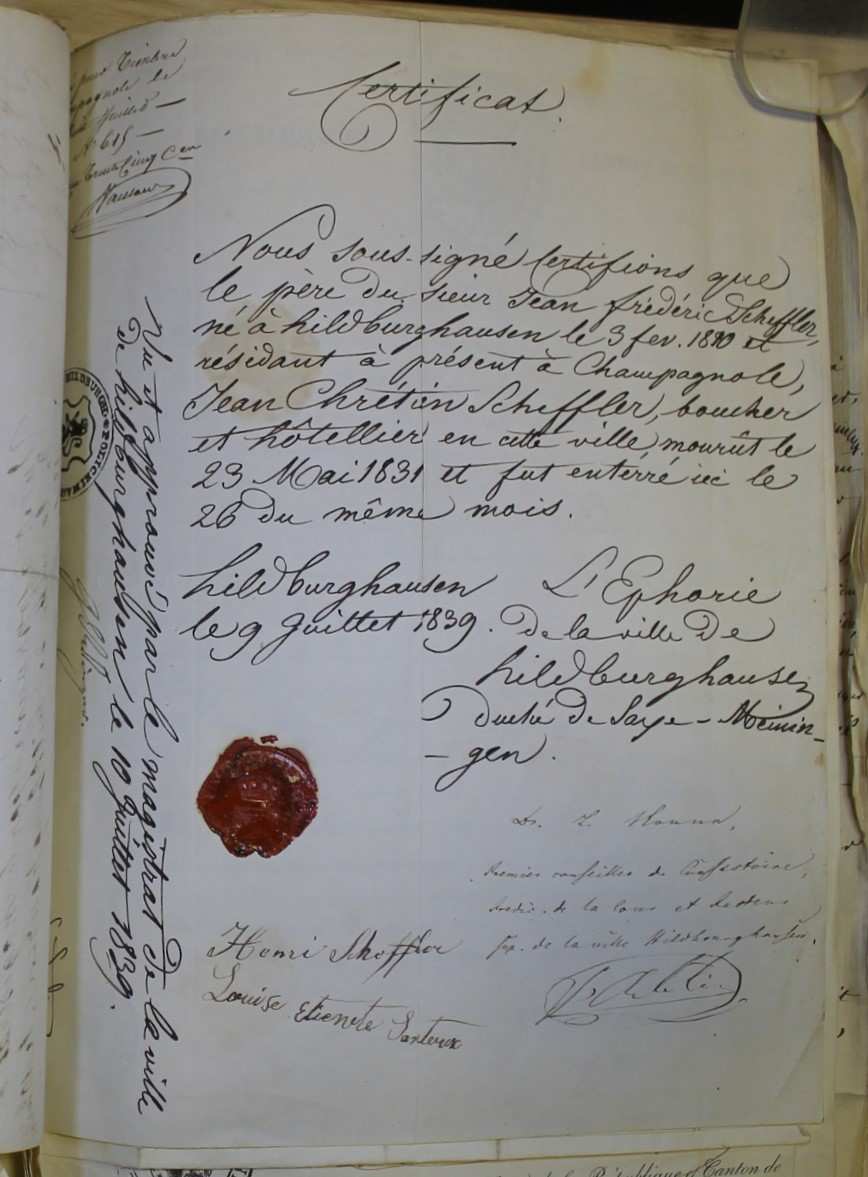 pour Timbre
Champagnole le
Juillet
N° 615
Trente Cinq Cen
Certificat.
Nous sous-signé Certifions que
le père du sieur Jean frédéric Scheffler,
né à hildburghausen le 3 fev. 1810 et
résidant à présent à Champagnole,
Jean Chrétien Scheffler, boucher
et hôtellier en cette ville, mourût le
23 Mai 1831 et fut enterré ici le
26 du même mois.
hildburghausen
le 9 Juillet 1839.
L'Ephorie
de la ville de
hildburghausen
Duché de Saxe-Meinin-
-gen.
Dr.
premier conseiller de Consistoire,
de la cour et
Sup. de la ville Hildbourghausen.
Henri Scheffler
Louise Etienne
Vu et approuvé par le magistrat de la ville
de hildburghausen le 10 Juillet 1839.